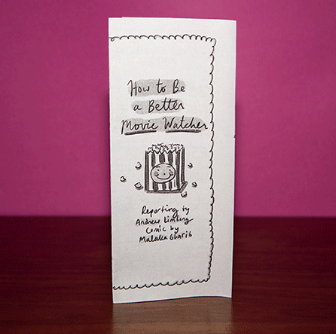 How to Be
a Better
Movie Watcher
Reporting by
Andrew Limbong
Comic by
Malaka Gharib